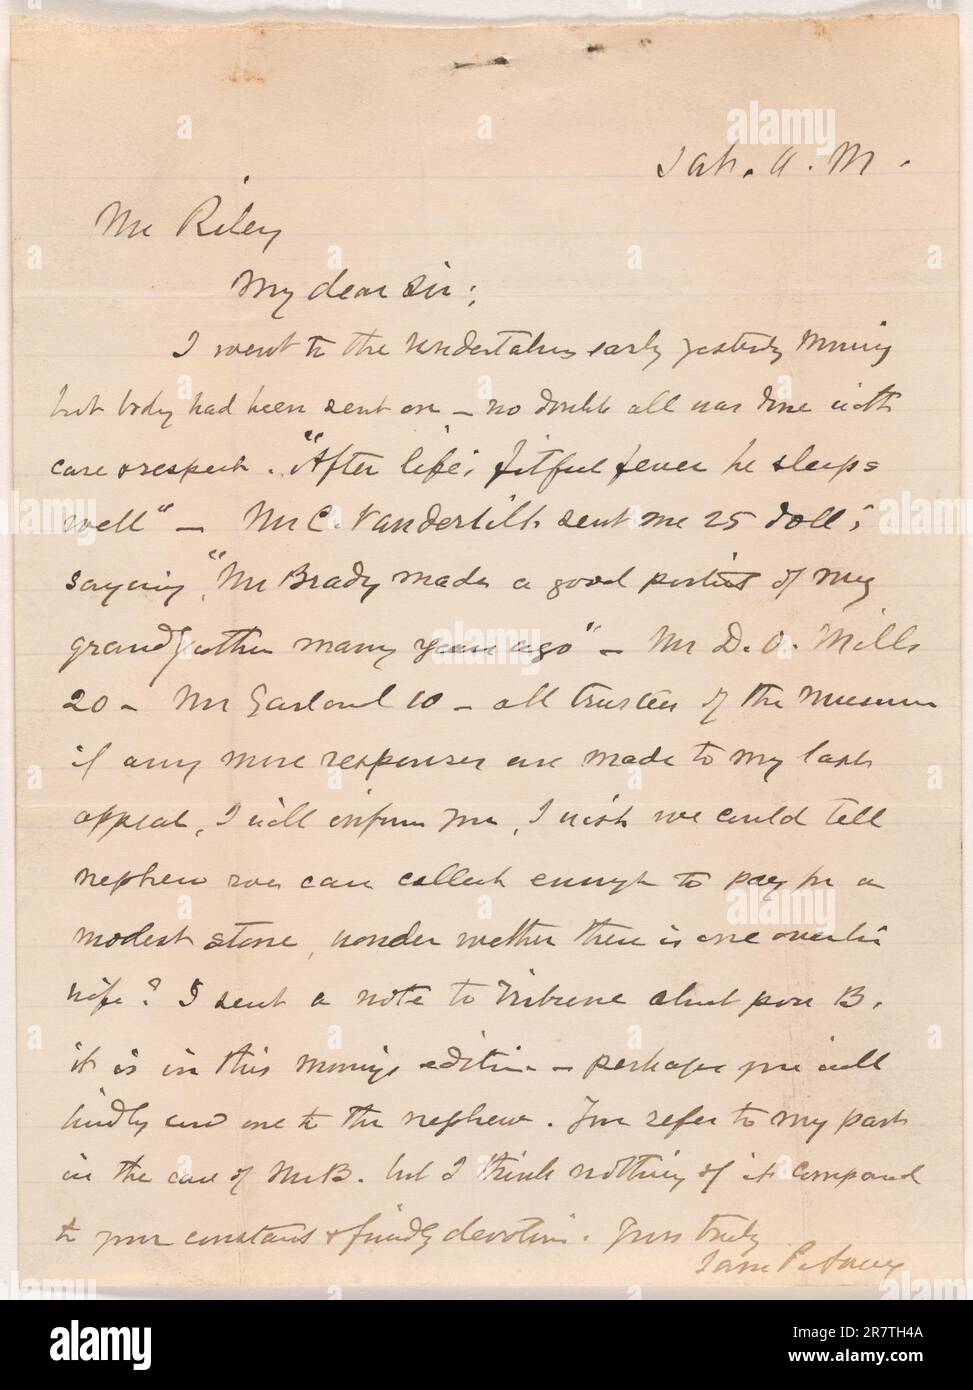 Sat. A. M.
Mr Riley
My dear Sir;
I went to the undertakers early yesterday morning
but body had been sent on - no doubt all was done with
care & respect. "After life's fitful fever he sleeps
well" - Mr C. Vanderbilt sent me 25 doll's
saying, "Mr Brady made a good portrait of my
grandfather many years ago" - Mr D. O. Mills
20 - Mr Garland 10 - all trustees of the Museum
if any more responses are made to my last
appeal, I will inform you, I wish we could tell
nephew we can collect enough to pay for a
modest stone, wonder whether there is one over his
wife? I sent a note to Tribune about poor B.
it is in this mornings edition - perhaps you will
kindly send one to the nephew. You refer to my part
in the care of Mr B. but I think nothing of it compared
to your constant & friendly devotion. Yours truly
Sam P.
alamy
Image ID: 2R7TH4A
www.alamy.com